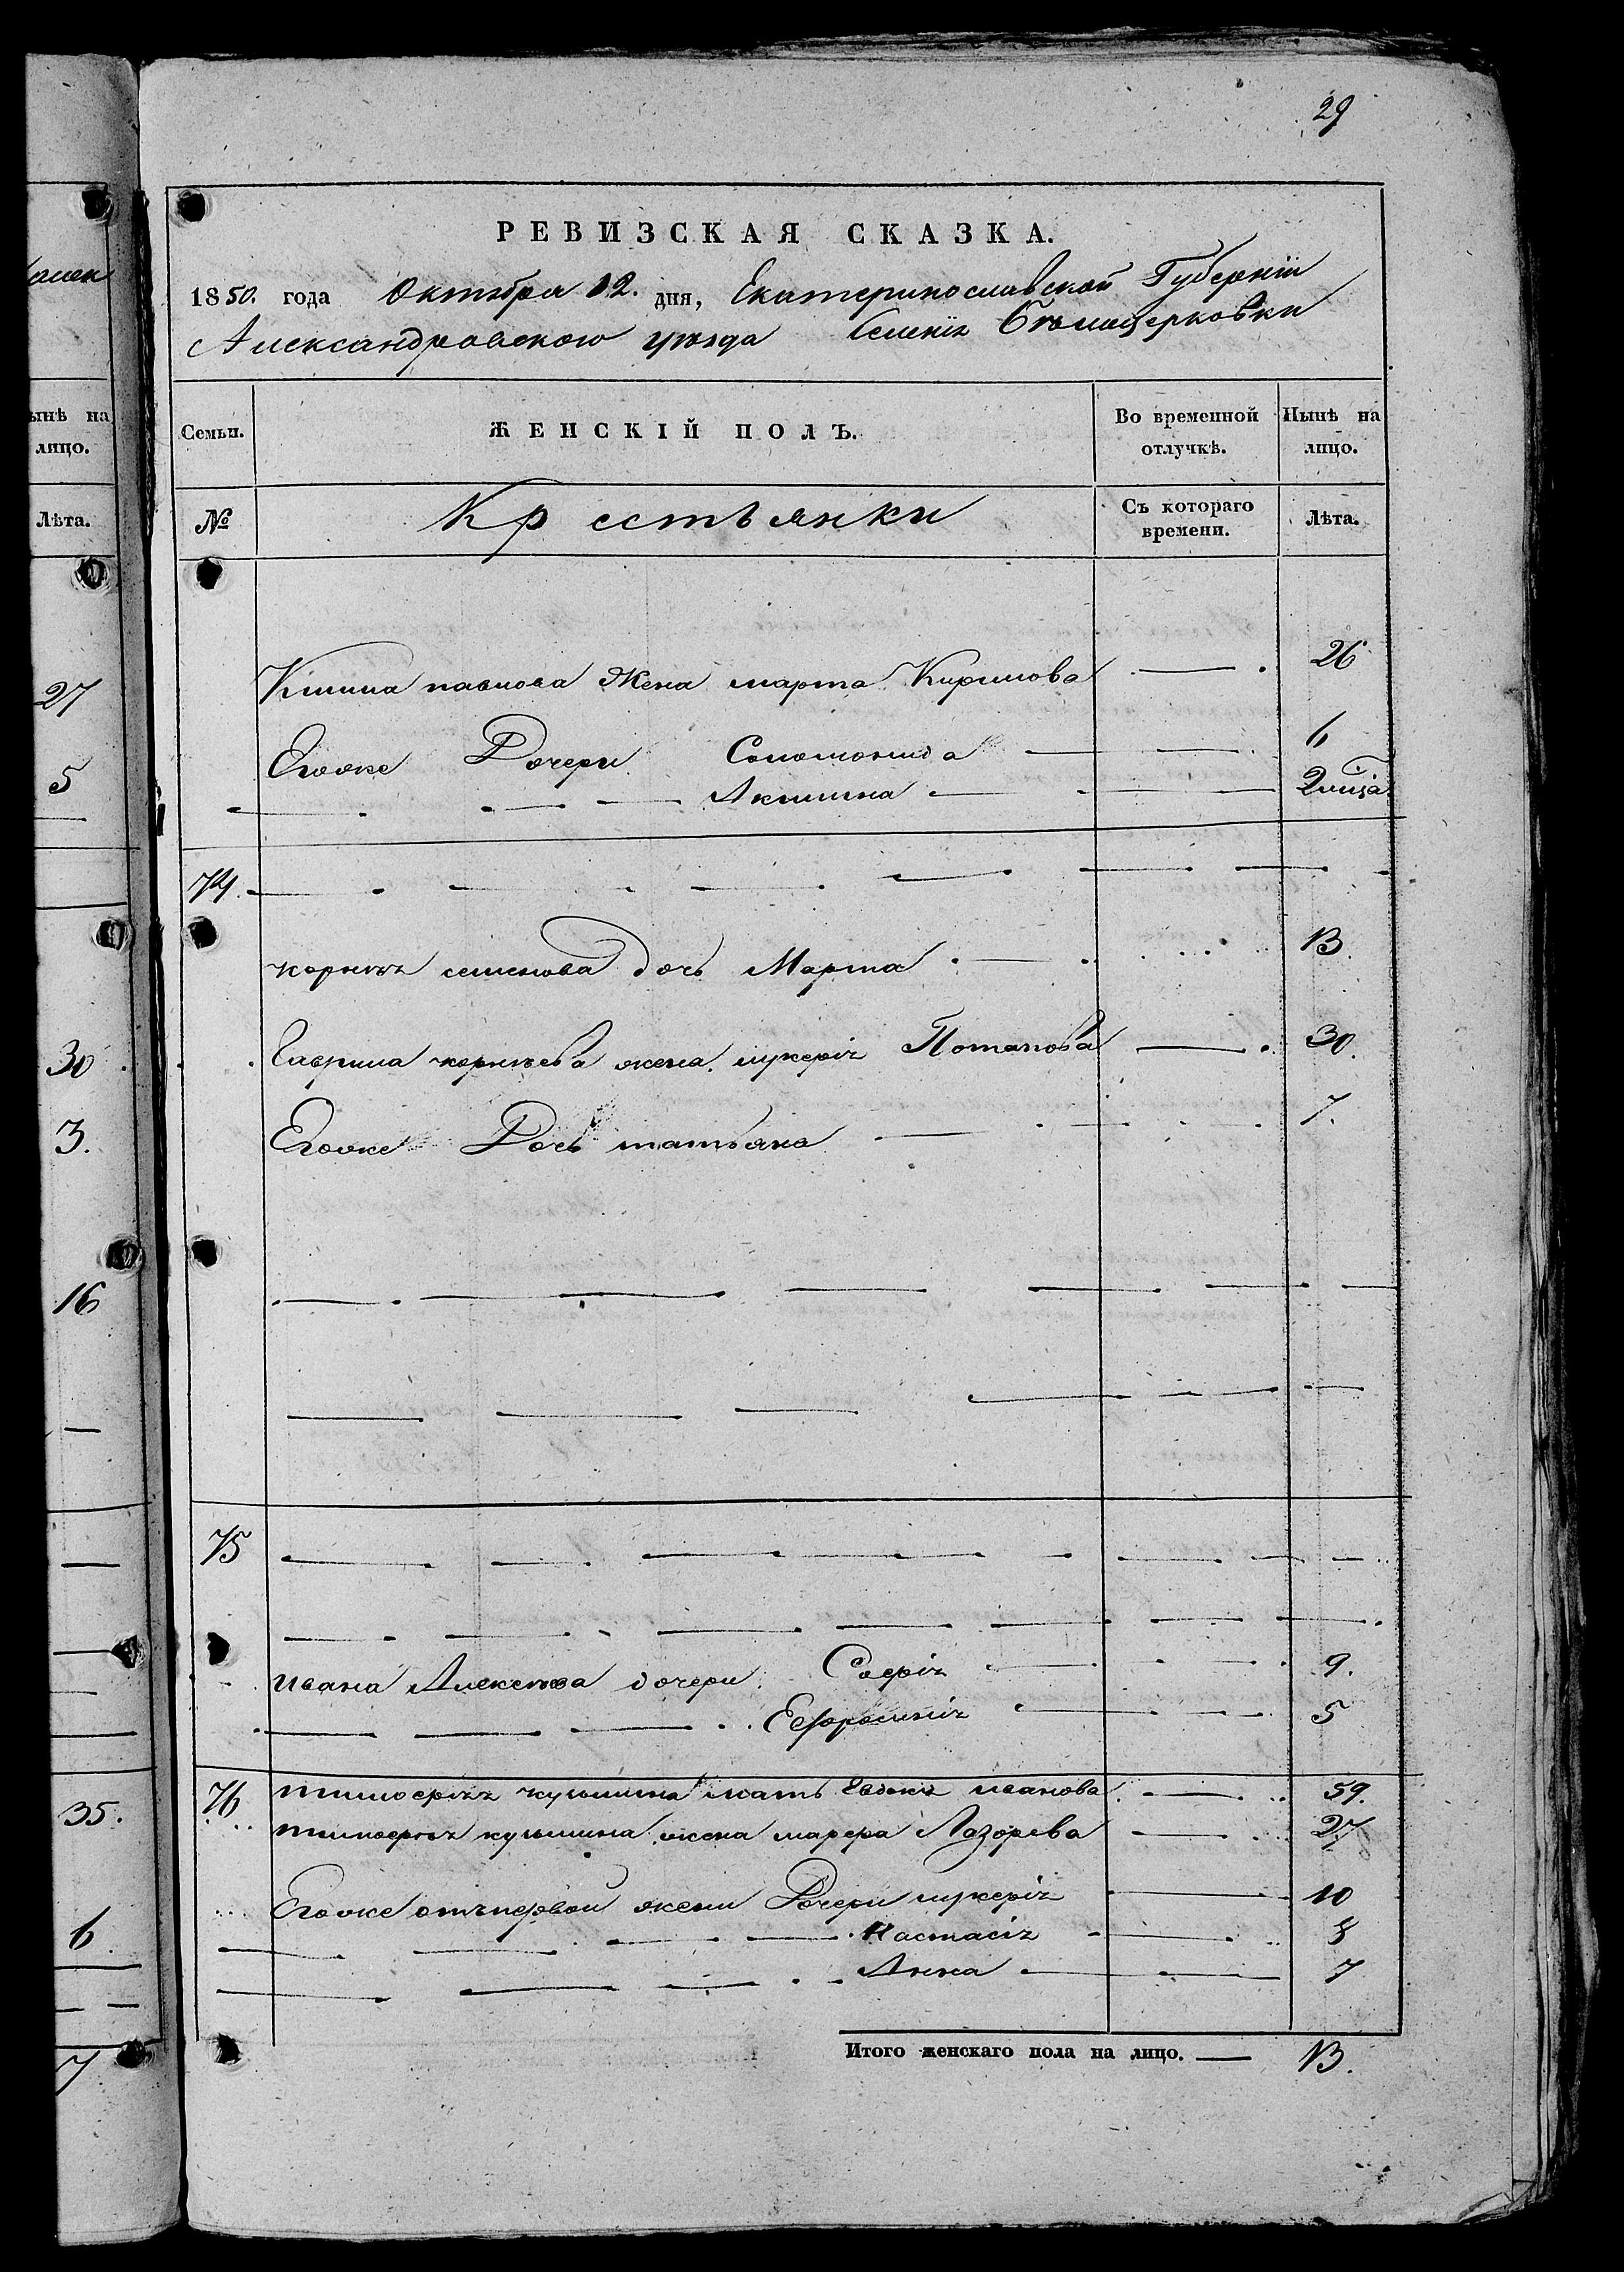 29
РЕВИЗСКАЯ СКАЗКА.
1850. года Октября 12. дня, Екатеринославской Губерніи
Александровского уѣзда Селенія Бѣлоцерковки
Семьи. ЖЕНСКІЙ ПОЛЪ. Во временной отлучкѣ. Нынѣ на лицо.
№ Крестьянки Съ котораго времени. Лѣта.
павлова Жена марта Кирилова 26
Егоже Дочери Соломонида 6
Акилина
74.
корнѣя семенова дочь Марта 13.
Гаврила корнѣева жена лукерія Потапова 30.
Егоже Дочь татьяна 7.
75
ивана Алексѣева дочери Софія 9.
Ефросинія 5
76. тимофѣя кузьмина мать Евдокия иванова 59.
тимофѣя кузьмина жена марфа Лазорева 27
Егоже отъ первой жены Дочери лукерія 10
Настасія 8
Анна 7
Итого женскаго пола на лицо. 13.
ынѣ на
лицо.
Лѣта.
27
5
30
3.
16
35.
6
7